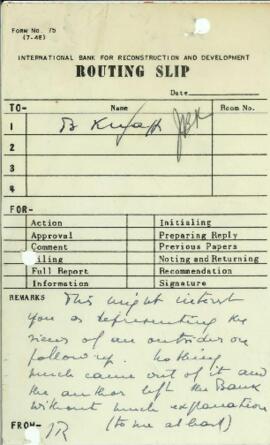 FORM No. 75
(7-48)
INTERNATIONAL BANK FOR RECONSTRUCTION AND DEVELOPMENT
ROUTING SLIP
Date
TO- Name Room No.
1 B Knapp JBK
2
3
4
FOR-
Action Initialing
Approval Preparing Reply
Comment Previous Papers
iling Noting and Returning
Full Report Recommendation
Information Signature
REMARKS This might interest
you as representing the
views of an outsider on
follow up. Nothing
much came out of it and
the author left the Bank
without much explanation
(to me at least)
FROM- JR